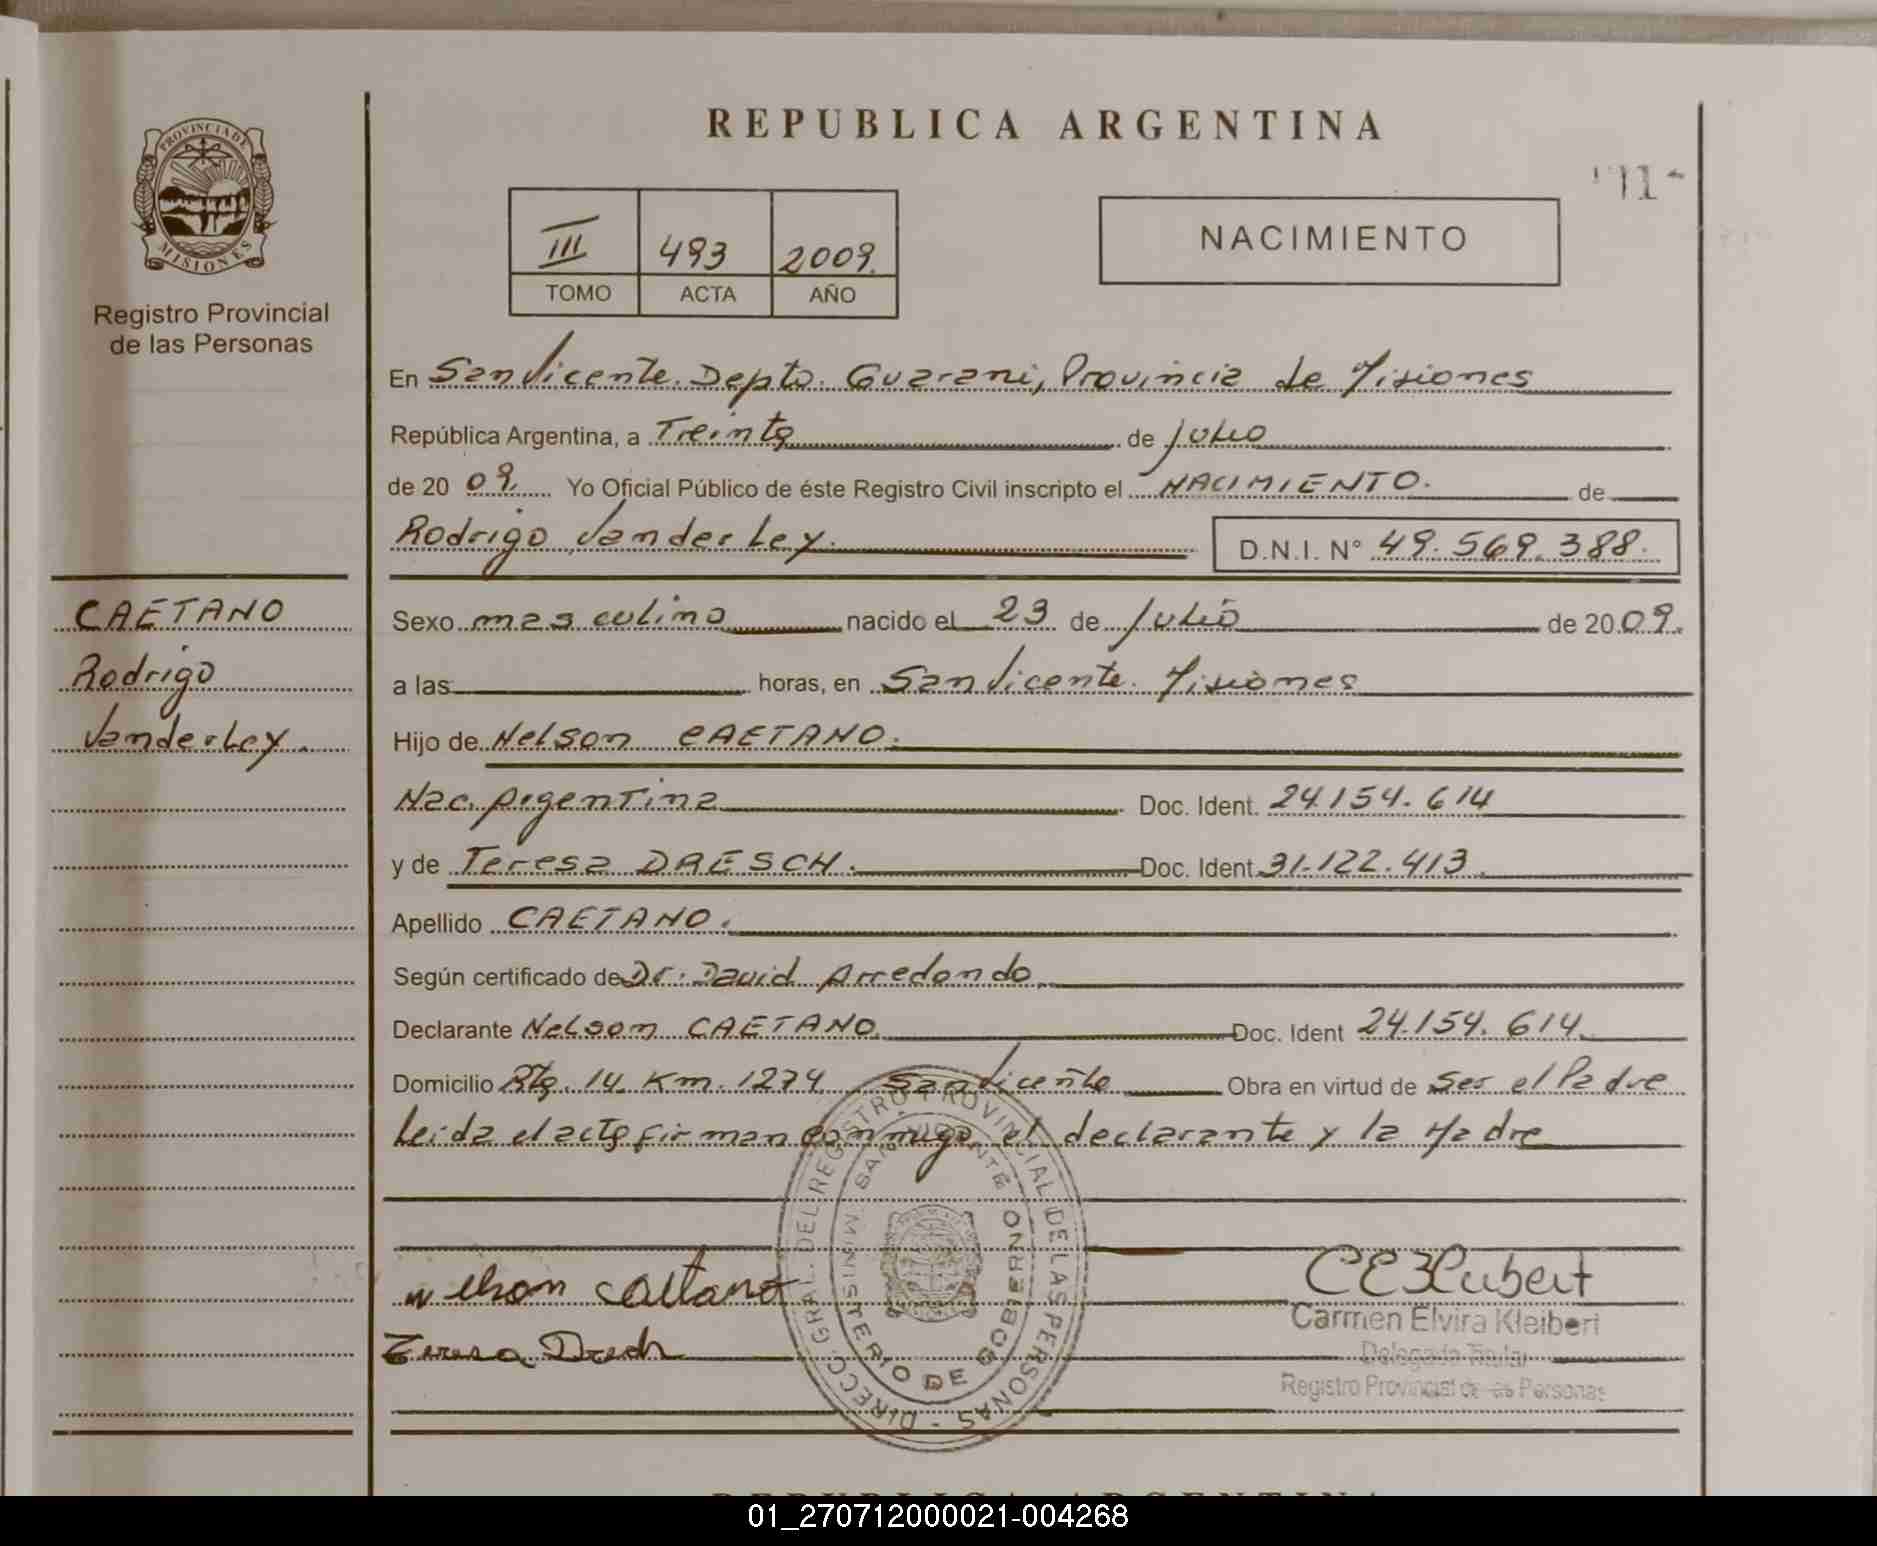 REPUBLICA ARGENTINA
PROVINCIA DE
MISIONES
Registro Provincial
de las Personas
III 493 2009.
TOMO ACTA AÑO
NACIMIENTO
En San Vicente. Depto. Guarani, Provincia de Misiones
República Argentina, a Treinta de Julio
de 20 09. Yo Oficial Público de éste Registro Civil inscripto el NACIMIENTO. de
Rodrigo Vanderley. D.N.I. N° 49.569.388.
CAETANO
Rodrigo
Vanderley.
Sexo masculino nacido el 23 de Julio de 20 09.
a las horas, en San Vicente. Misiones
Hijo de Nelson CAETANO.
Nac. Argentina Doc. Ident. 24.154.614
y de Teresa DRESCH. Doc. Ident. 31.122.413
Apellido CAETANO.
Según certificado de Dr. David Arredondo.
Declarante Nelson CAETANO. Doc. Ident 24.154.614.
Domicilio Rta. 14 Km. 1274 San Vicente Obra en virtud de Ser el Padre
Leida el acta firman conmigo, el declarante y la Madre
DIRECC. GRAL. DEL REGISTRO PROVINCIAL DE LAS PERSONAS -
SAN VICENTE
MINISTERIO DE GOBIERNO
Caetano
Teresa
Carmen Elvira Kleibert
Delegada Titular
Registro Provincial de las Personas
REPUBLICA ARGENTINA
01_270712000021-004268